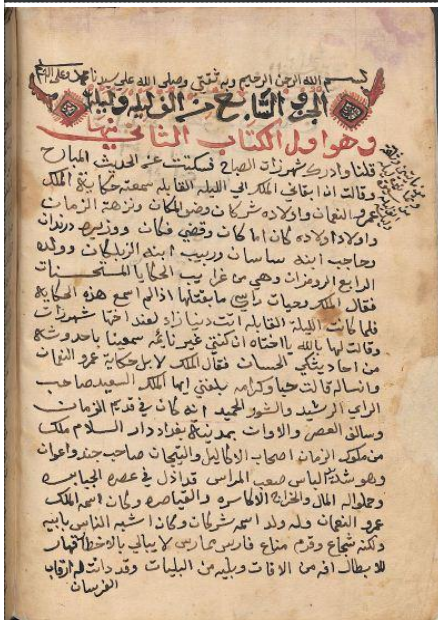 بسم الله الرحمن الرحيم وبه ثقتي وصلى الله على سيدنا محمد وعلى اله
الجزو التاسع من الف ليله وليله
وهو اول الكتاب الثاني منها
قلنا وادرك شهرزات الصباح فسكتت عن الحديث المباح
وقالت ان ابقاني الملك الى الليلة القابله سمعته حكاية الملك
عمرو النعمان واولاده شركان وضو المكان ونزهة الزمان
واولاد اولاده كان اما كان وقضي فكان ووزيره درندان
وحاجب ابنه ساسان وربيب ابنه الزبلكان وولده
الرابع الرومزان وهي من غرايب الحكايا المستحسنات
فقال الملك وحيات راسي ما بقتلها اذا لم اسمع هذه الحكاية
فلما كانت الليلة القابله اتت دينازاد لعند اختها شهرزات
وقالت لها بالله يا اختاه ان كنتي غير نائمه سمعينا باحدوثة
من احاديثكي الحسان فقال الملك لا بل حكاية عمرو النعمان
وانساله قالت حبا وكرامه بلغني ايها الملك السعيد صاحب
الراي الرشيد والشور الحميد انه كان في قديم الزمان
وسالف العصر والاوان بمدينة بغداد دار السلام ملك
من ملوك الزمان اصحاب الاكاليل والتيجان صاحب جند واعوان
وهو شديد الباس صعب المراس قد اذل في عصره الجبابره
وحملوا له المال والخراج الاكاسره والقياصره وكان اسمه الملك
عمرو النعمان وله ولد اسمه شركان وكان اشبه الناس بابيه
ولكنه شجاع وقرم مناع فارس ممارس لا يبالي بالاخطار قهار
للابطال افه من الافات وبليه من البليات وقد دانت له ارقاب
الفرسان